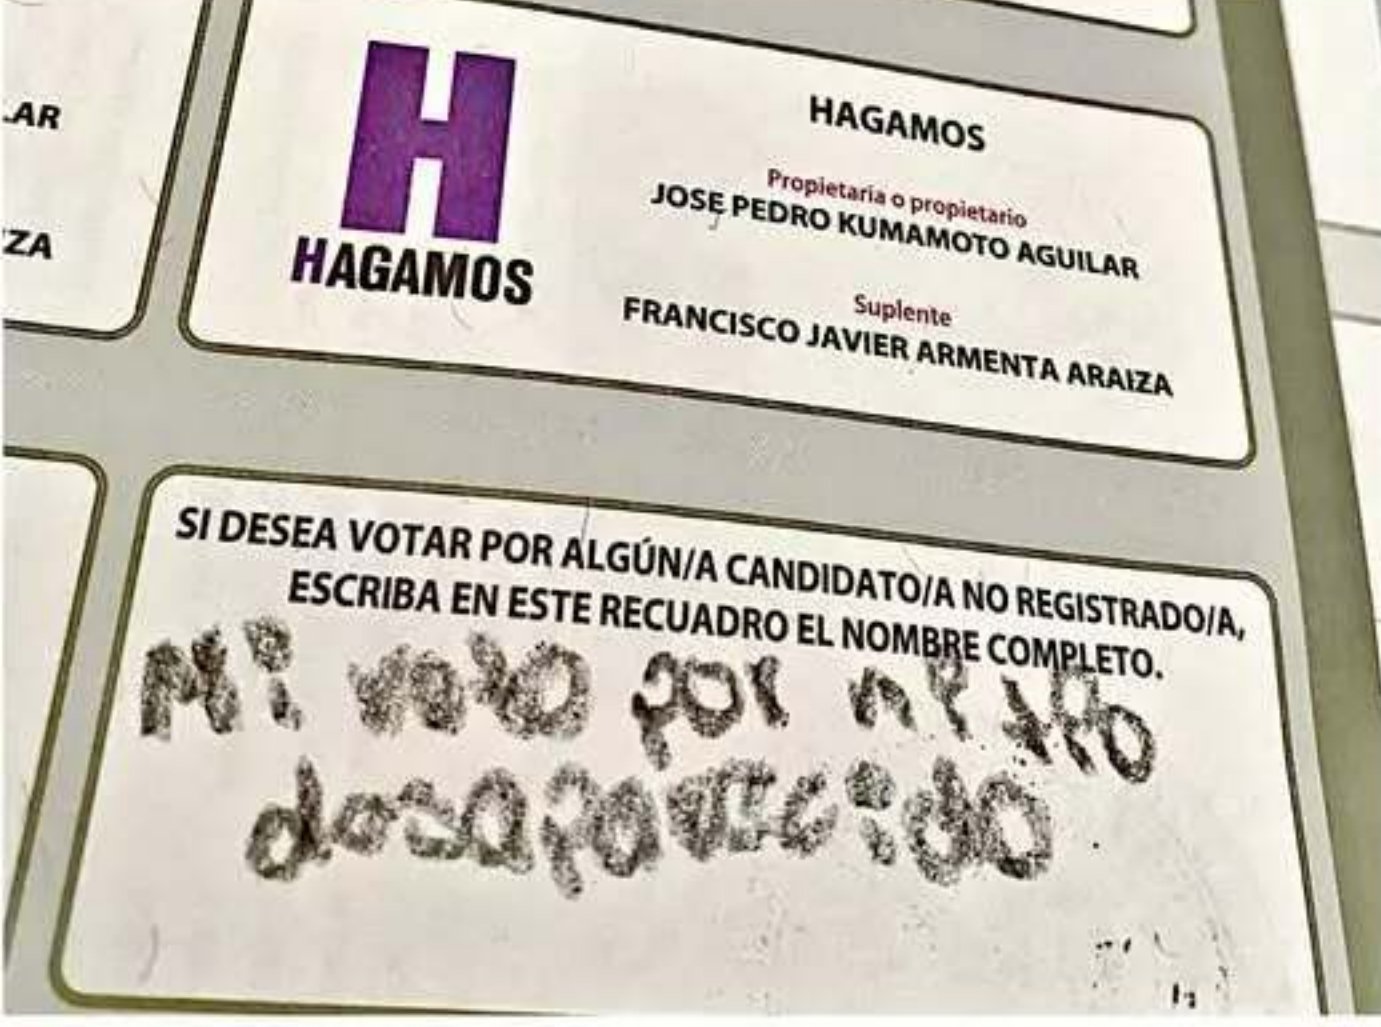 .AR
ZA
H
HAGAMOS
HAGAMOS
Propietaria o propietario
JOSE PEDRO KUMAMOTO AGUILAR
Suplente
FRANCISCO JAVIER ARMENTA ARAIZA
SI DESEA VOTAR POR ALGÚN/A CANDIDATO/A NO REGISTRADO/A,
ESCRIBA EN ESTE RECUADRO EL NOMBRE COMPLETO.
Mi voto por
desaparecido